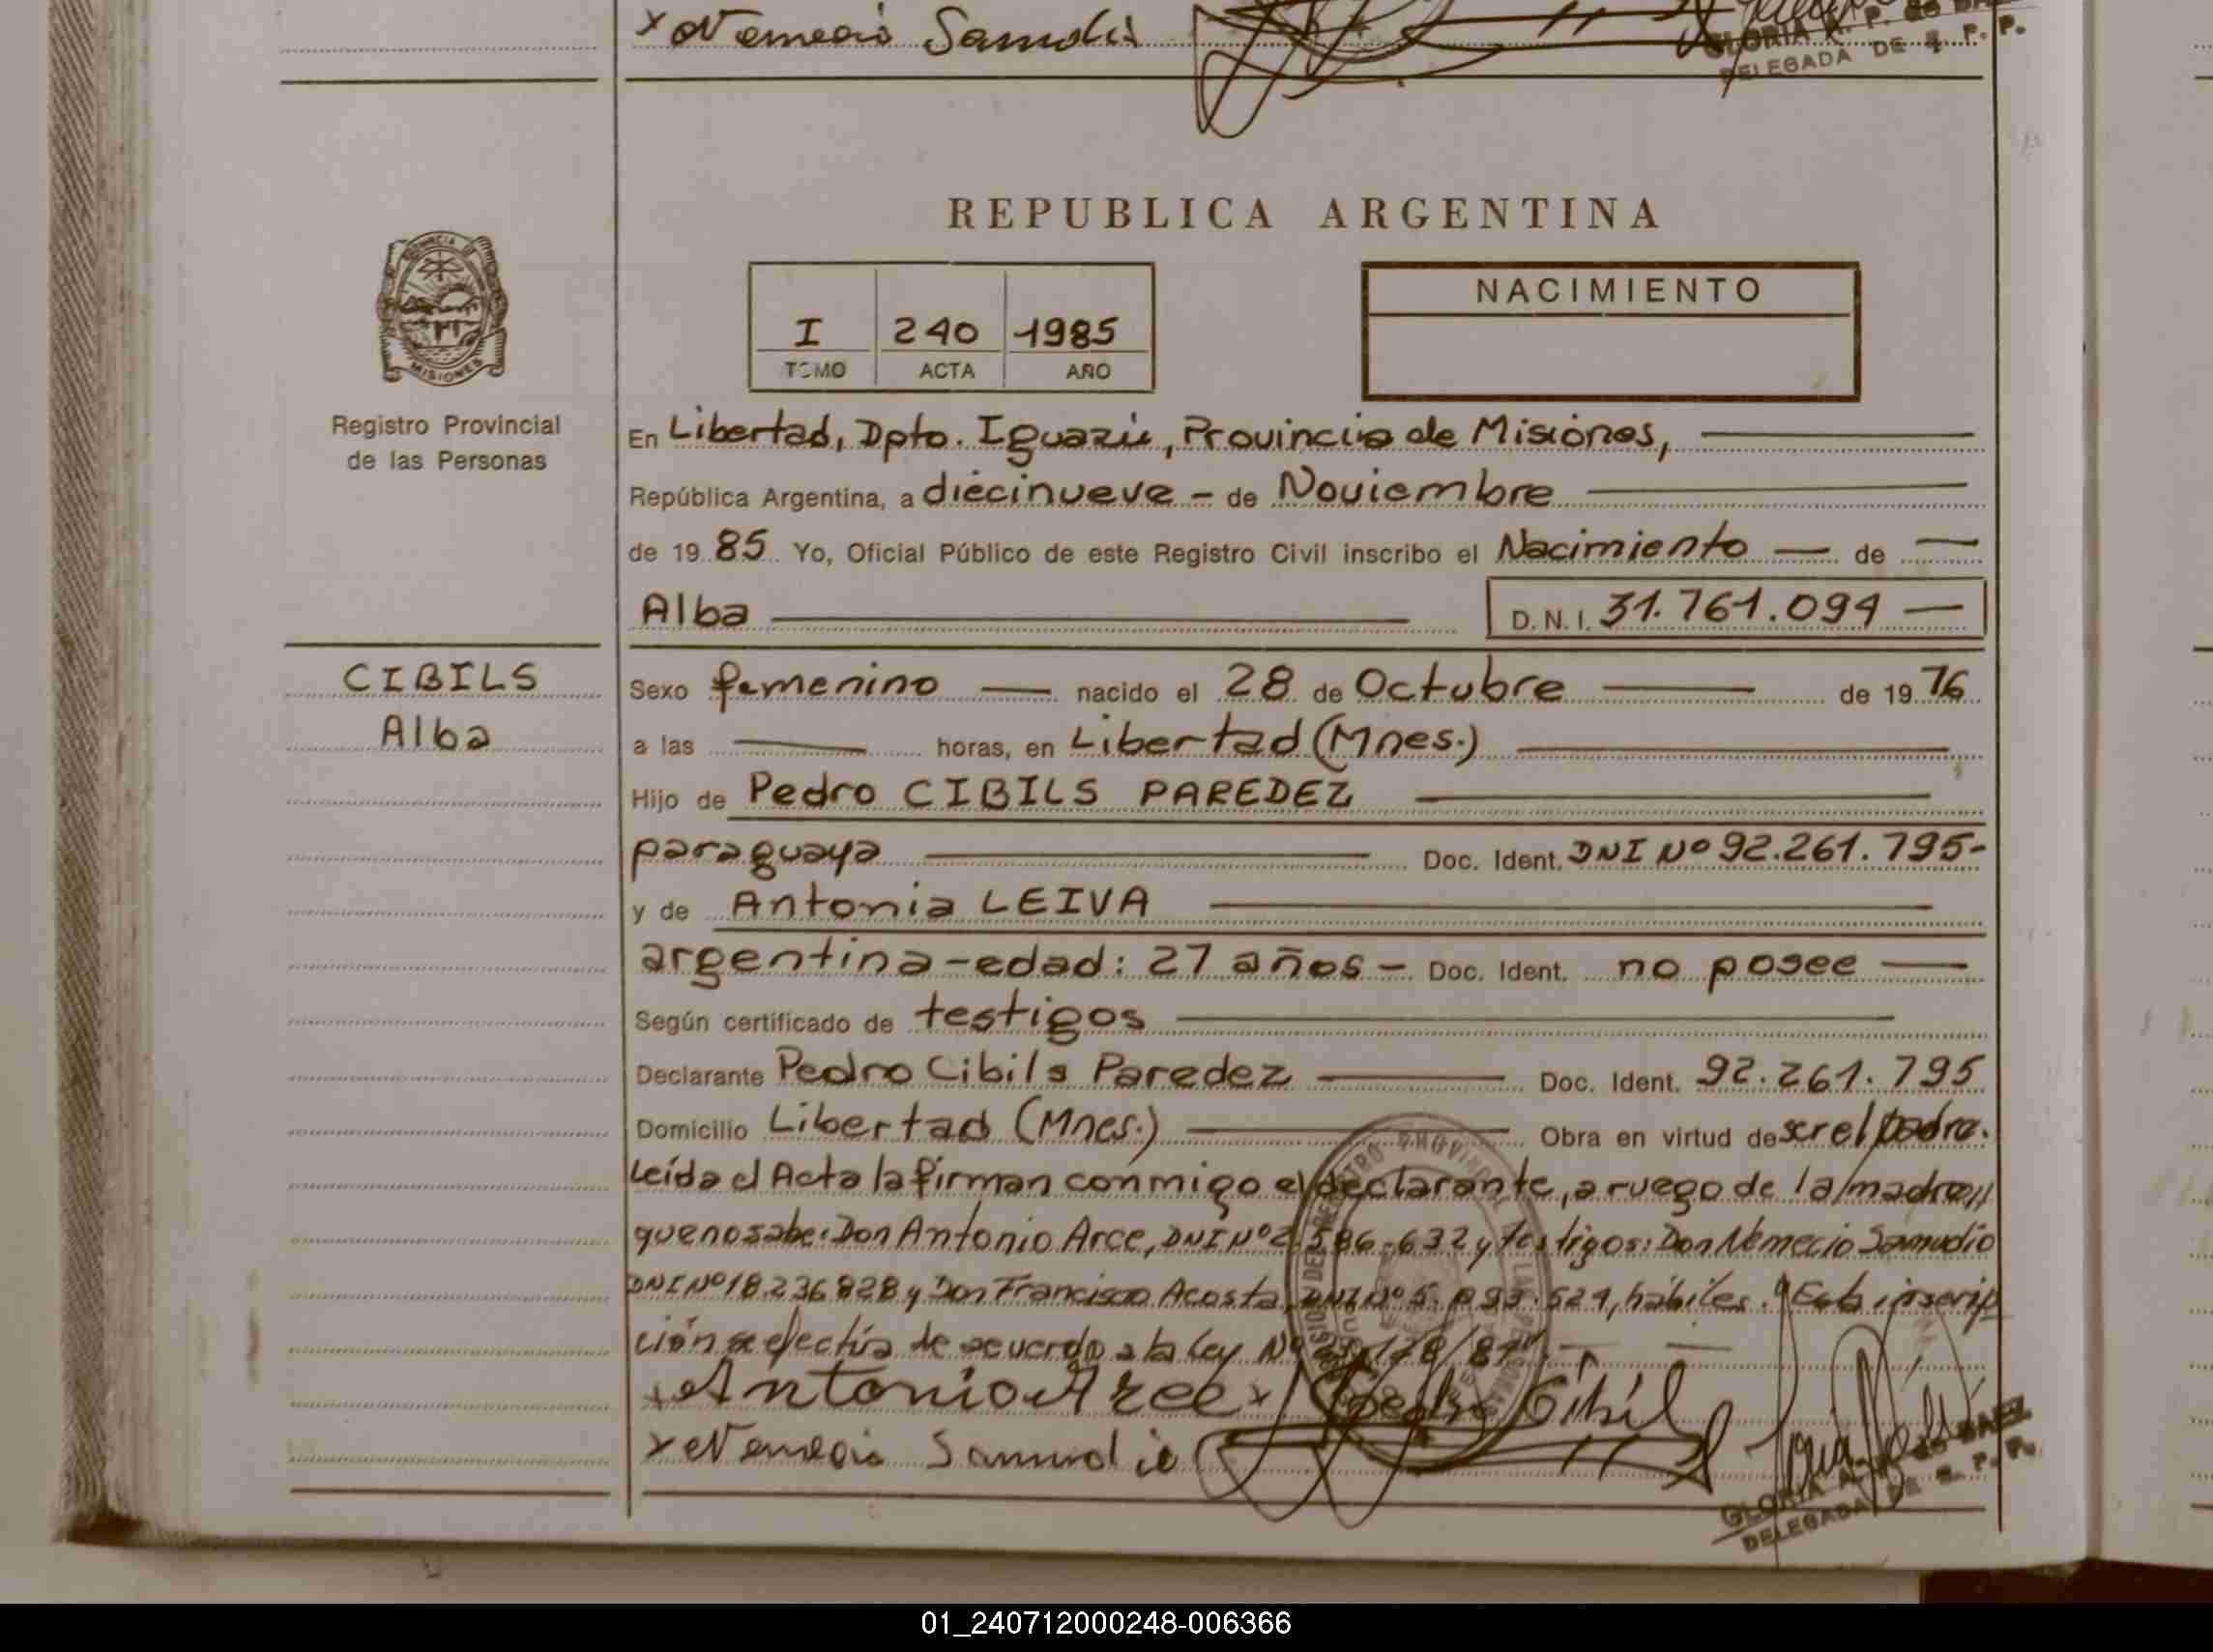 x Nemecio Samudio
GLORIA A. P. de BAEZ
DELEGADA DE R. P. P.
REPUBLICA ARGENTINA
PROVINCIA DE
MISIONES
Registro Provincial
de las Personas
I 240 1985
TOMO ACTA AÑO
NACIMIENTO
En Libertad, Dpto. Iguazú, Provincia de Misiones,
República Argentina, a diecinueve - de Noviembre
de 19 85 Yo, Oficial Público de este Registro Civil inscribo el Nacimiento — de —
Alba — D. N. I. 31.761.094 —
CIBILS
Alba
Sexo femenino — nacido el 28 de Octubre — de 19 76
a las — horas, en Libertad (Mnes.)
Hijo de Pedro CIBILS PAREDEZ
paraguaya — Doc. Ident. DNI Nº 92.261.795-
y de Antonia LEIVA
argentina-edad: 27 años - Doc. Ident. no posee —
Según certificado de testigos
Declarante Pedro Cibils Paredez — Doc. Ident. 92.261.795
Domicilio Libertad (Mnes.) — Obra en virtud de ser el padre.
Leída el Acta la firman conmigo el declarante, a ruego de la madre
que no sabe: Don Antonio Arce, DNI Nº 586.632 y testigos: Don Nemecio Samudio
DNI Nº 18.236828 y Don Francisco Acosta, DNI Nº 521, hábiles. "Esta inscrip
ción se efectúa de acuerdo a la Ley Nº
x Antonio Arce x Pedro Cibil
x Nemecio Samudio
GLORIA A. P. de BAEZ
DELEGADA DE R. P. P.
01_240712000248-006366